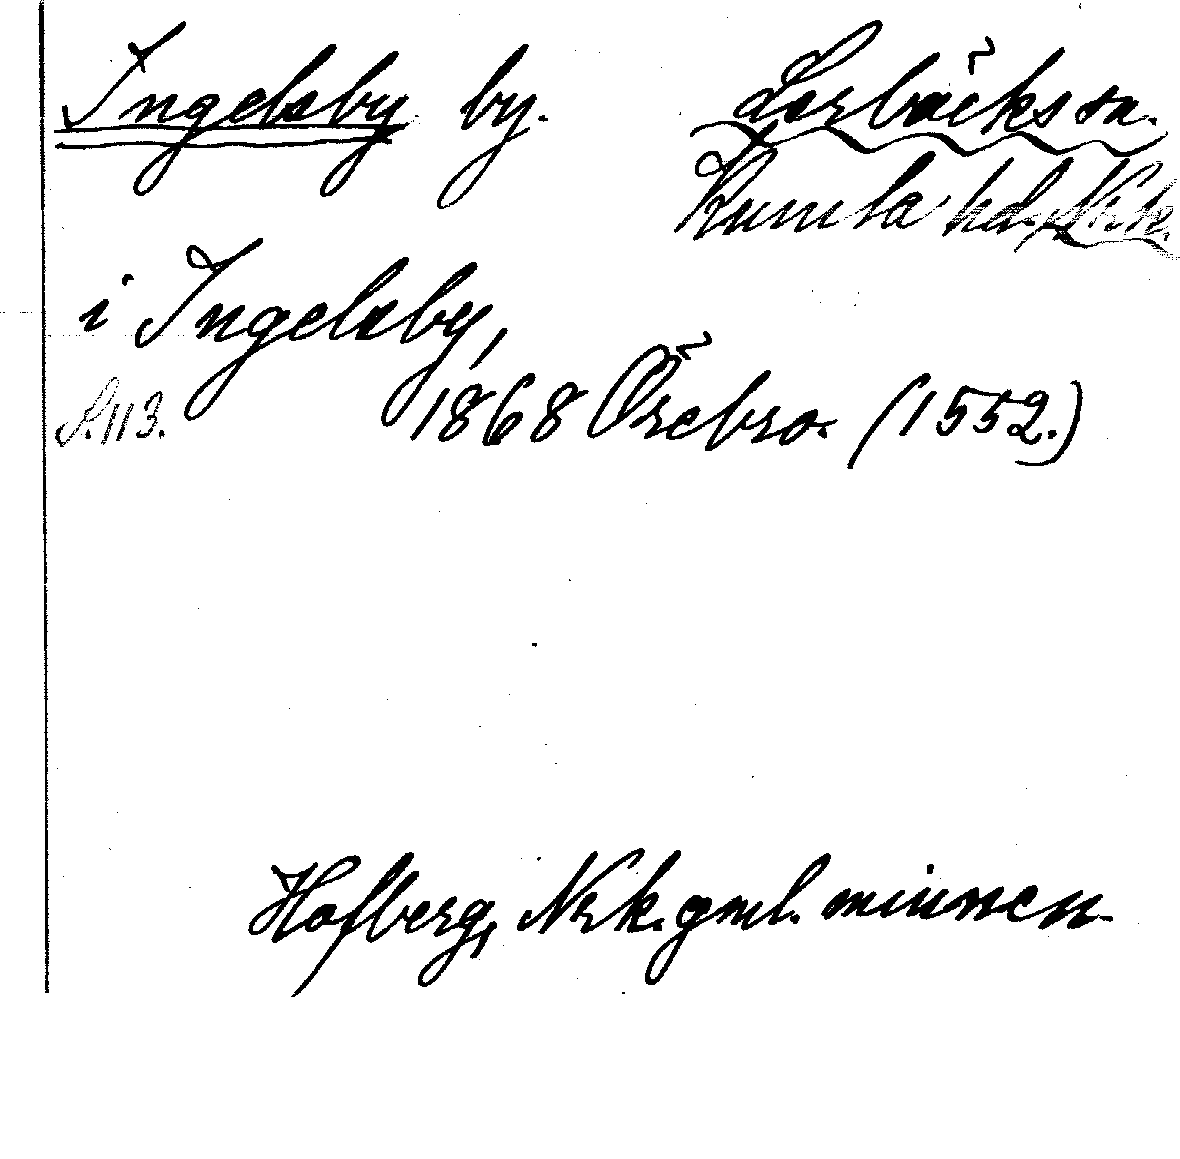 Ingelsby by. Lerbäcks sn.
Kumla hd., Nrk.
i Ingelsby,
S. 113. 1868 Örebro. (1552.)
Hofberg, Nrk. gml. minnen.